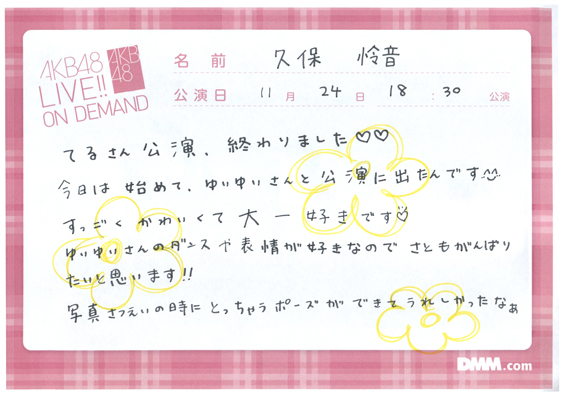 AKB48
LIVE!!
ON DEMAND
AKB
48
名前 久保 怜音
公演日 11月 24日 18:30 公演
てるさん公演、終わりました♡♡
今日は始めて、ゆいゆいさんと公演に出たんです
すっごくかわいくて大一好きです♡
ゆいゆいさんのダンスや表情が好きなので さともがんばり
たいと思います!!
写真さつえいの時にとっちゃうポーズができてうれしかったなぁ
DMM.com